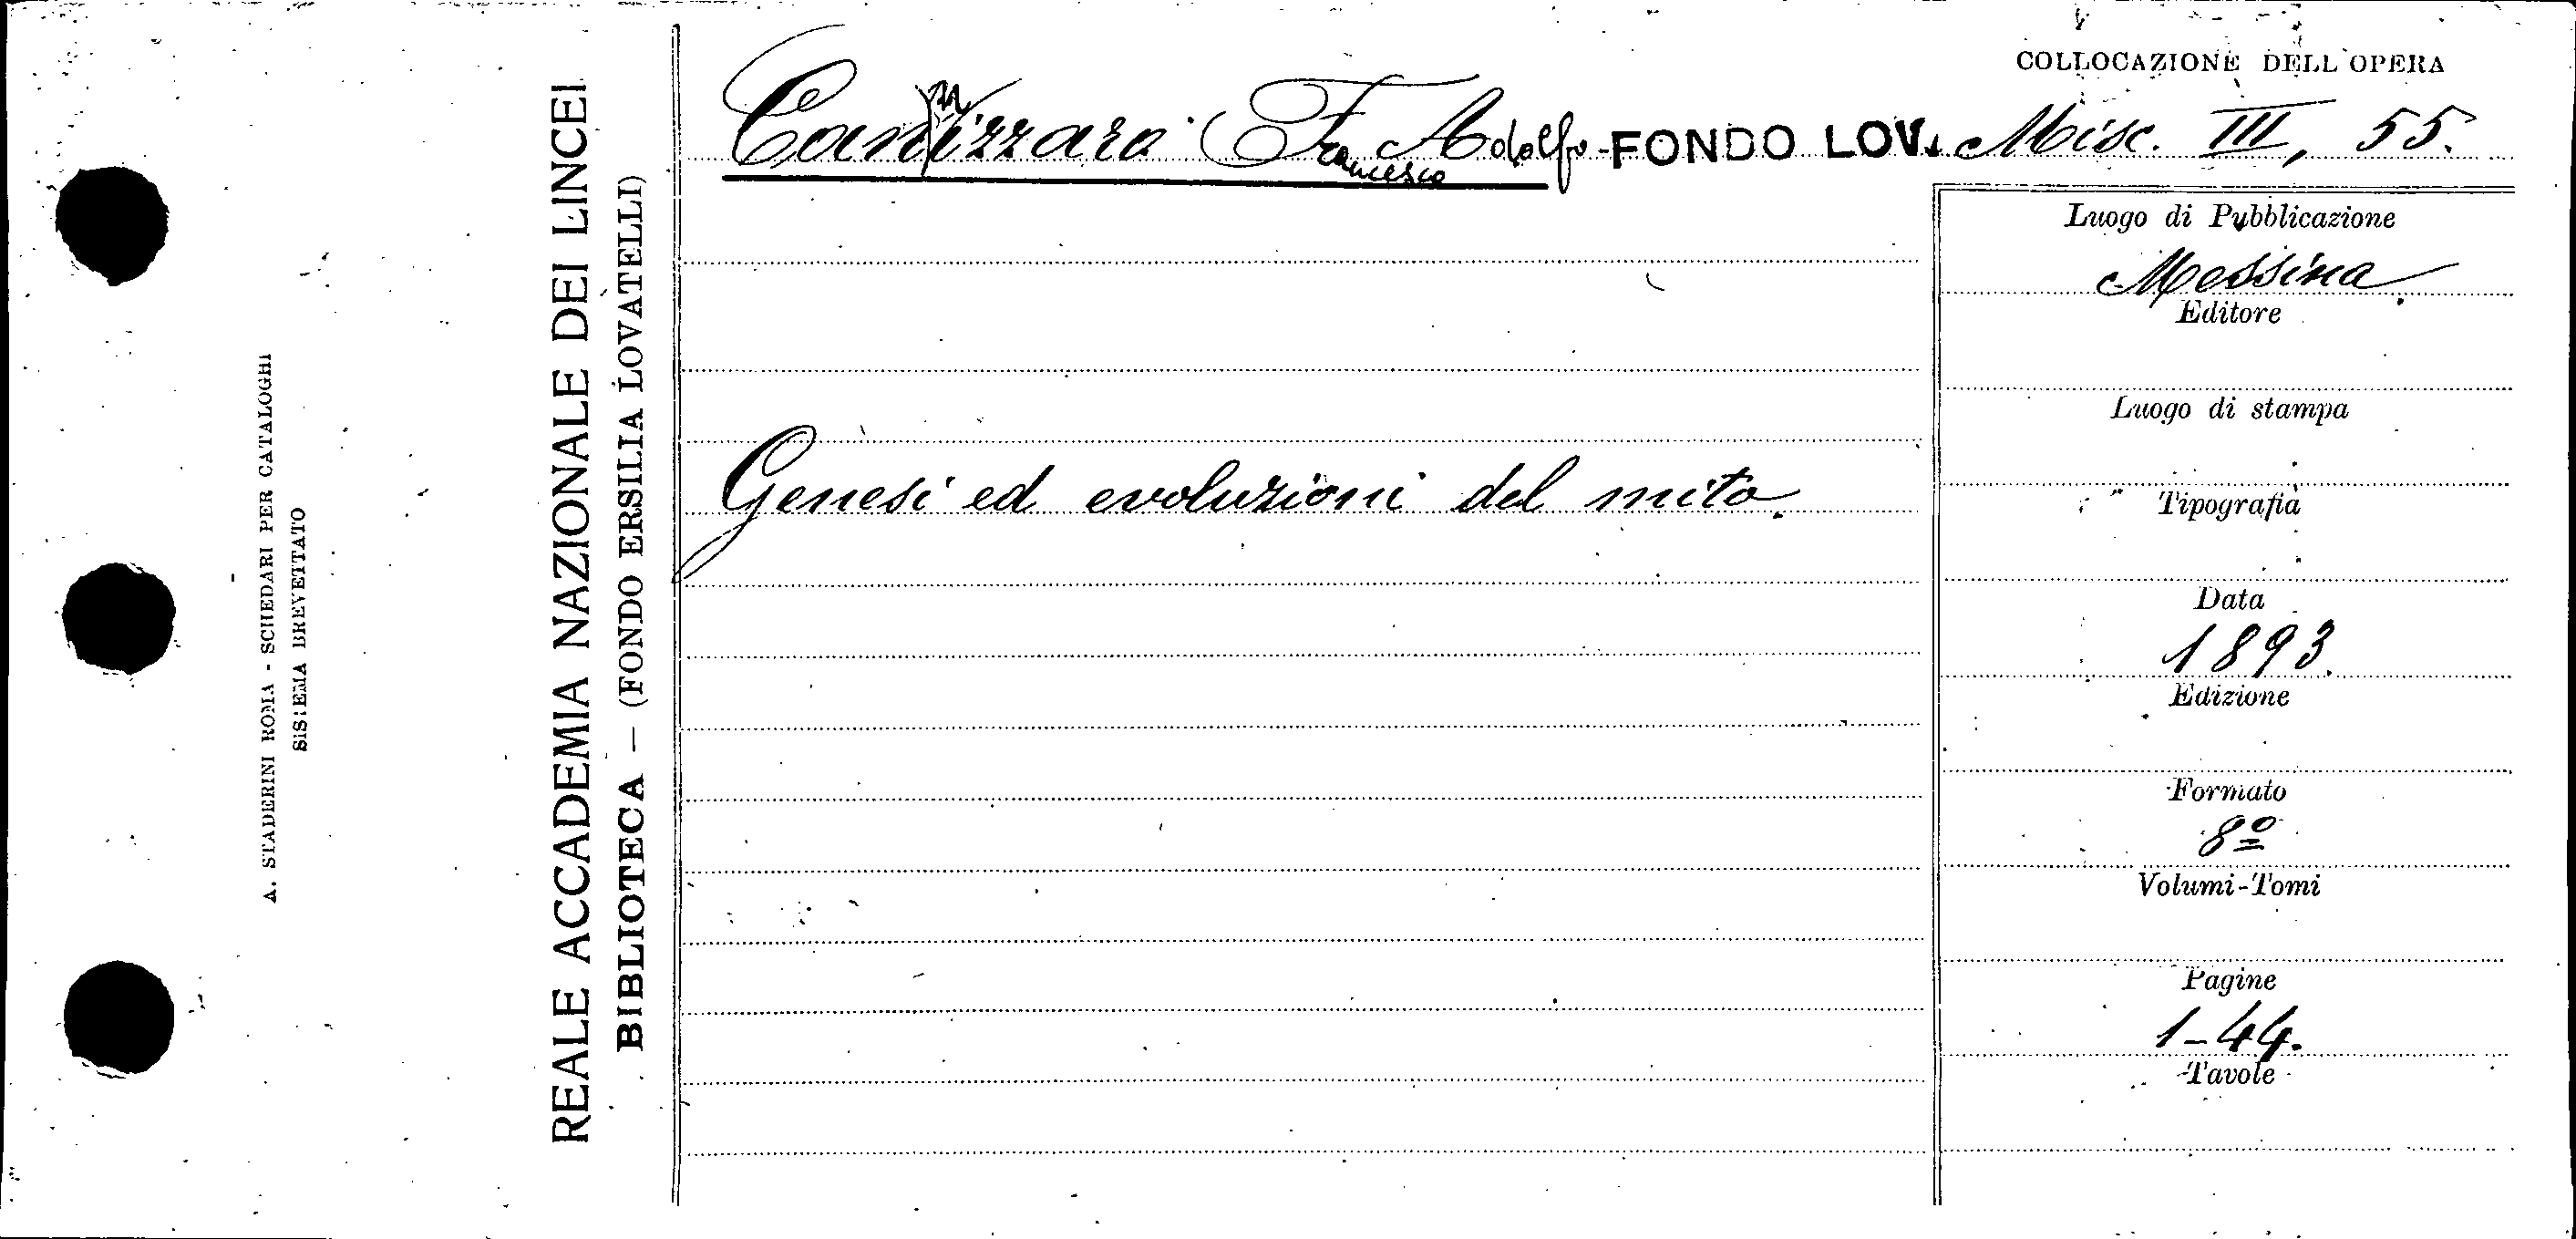 COLLOCAZIONE DELL'OPERA
Cannizzaro (Francesco Adolfo FONDO LOV. Misc. III, 55.
Genesi ed evoluzioni del mito.
Luogo di Pubblicazione
Messina
Editore
Luogo di stampa
Tipografia
Data
1893.
Edizione
Formato
8º
Volumi-Tomi
Pagine
1-44.
Tavole
REALE ACCADEMIA NAZIONALE DEI LINCEI
BIBLIOTECA — (FONDO ERSILIA LOVATELLI)
A. STADERINI ROMA - SCHEDARI PER CATALOGHI
SISTEMA BREVETTATO